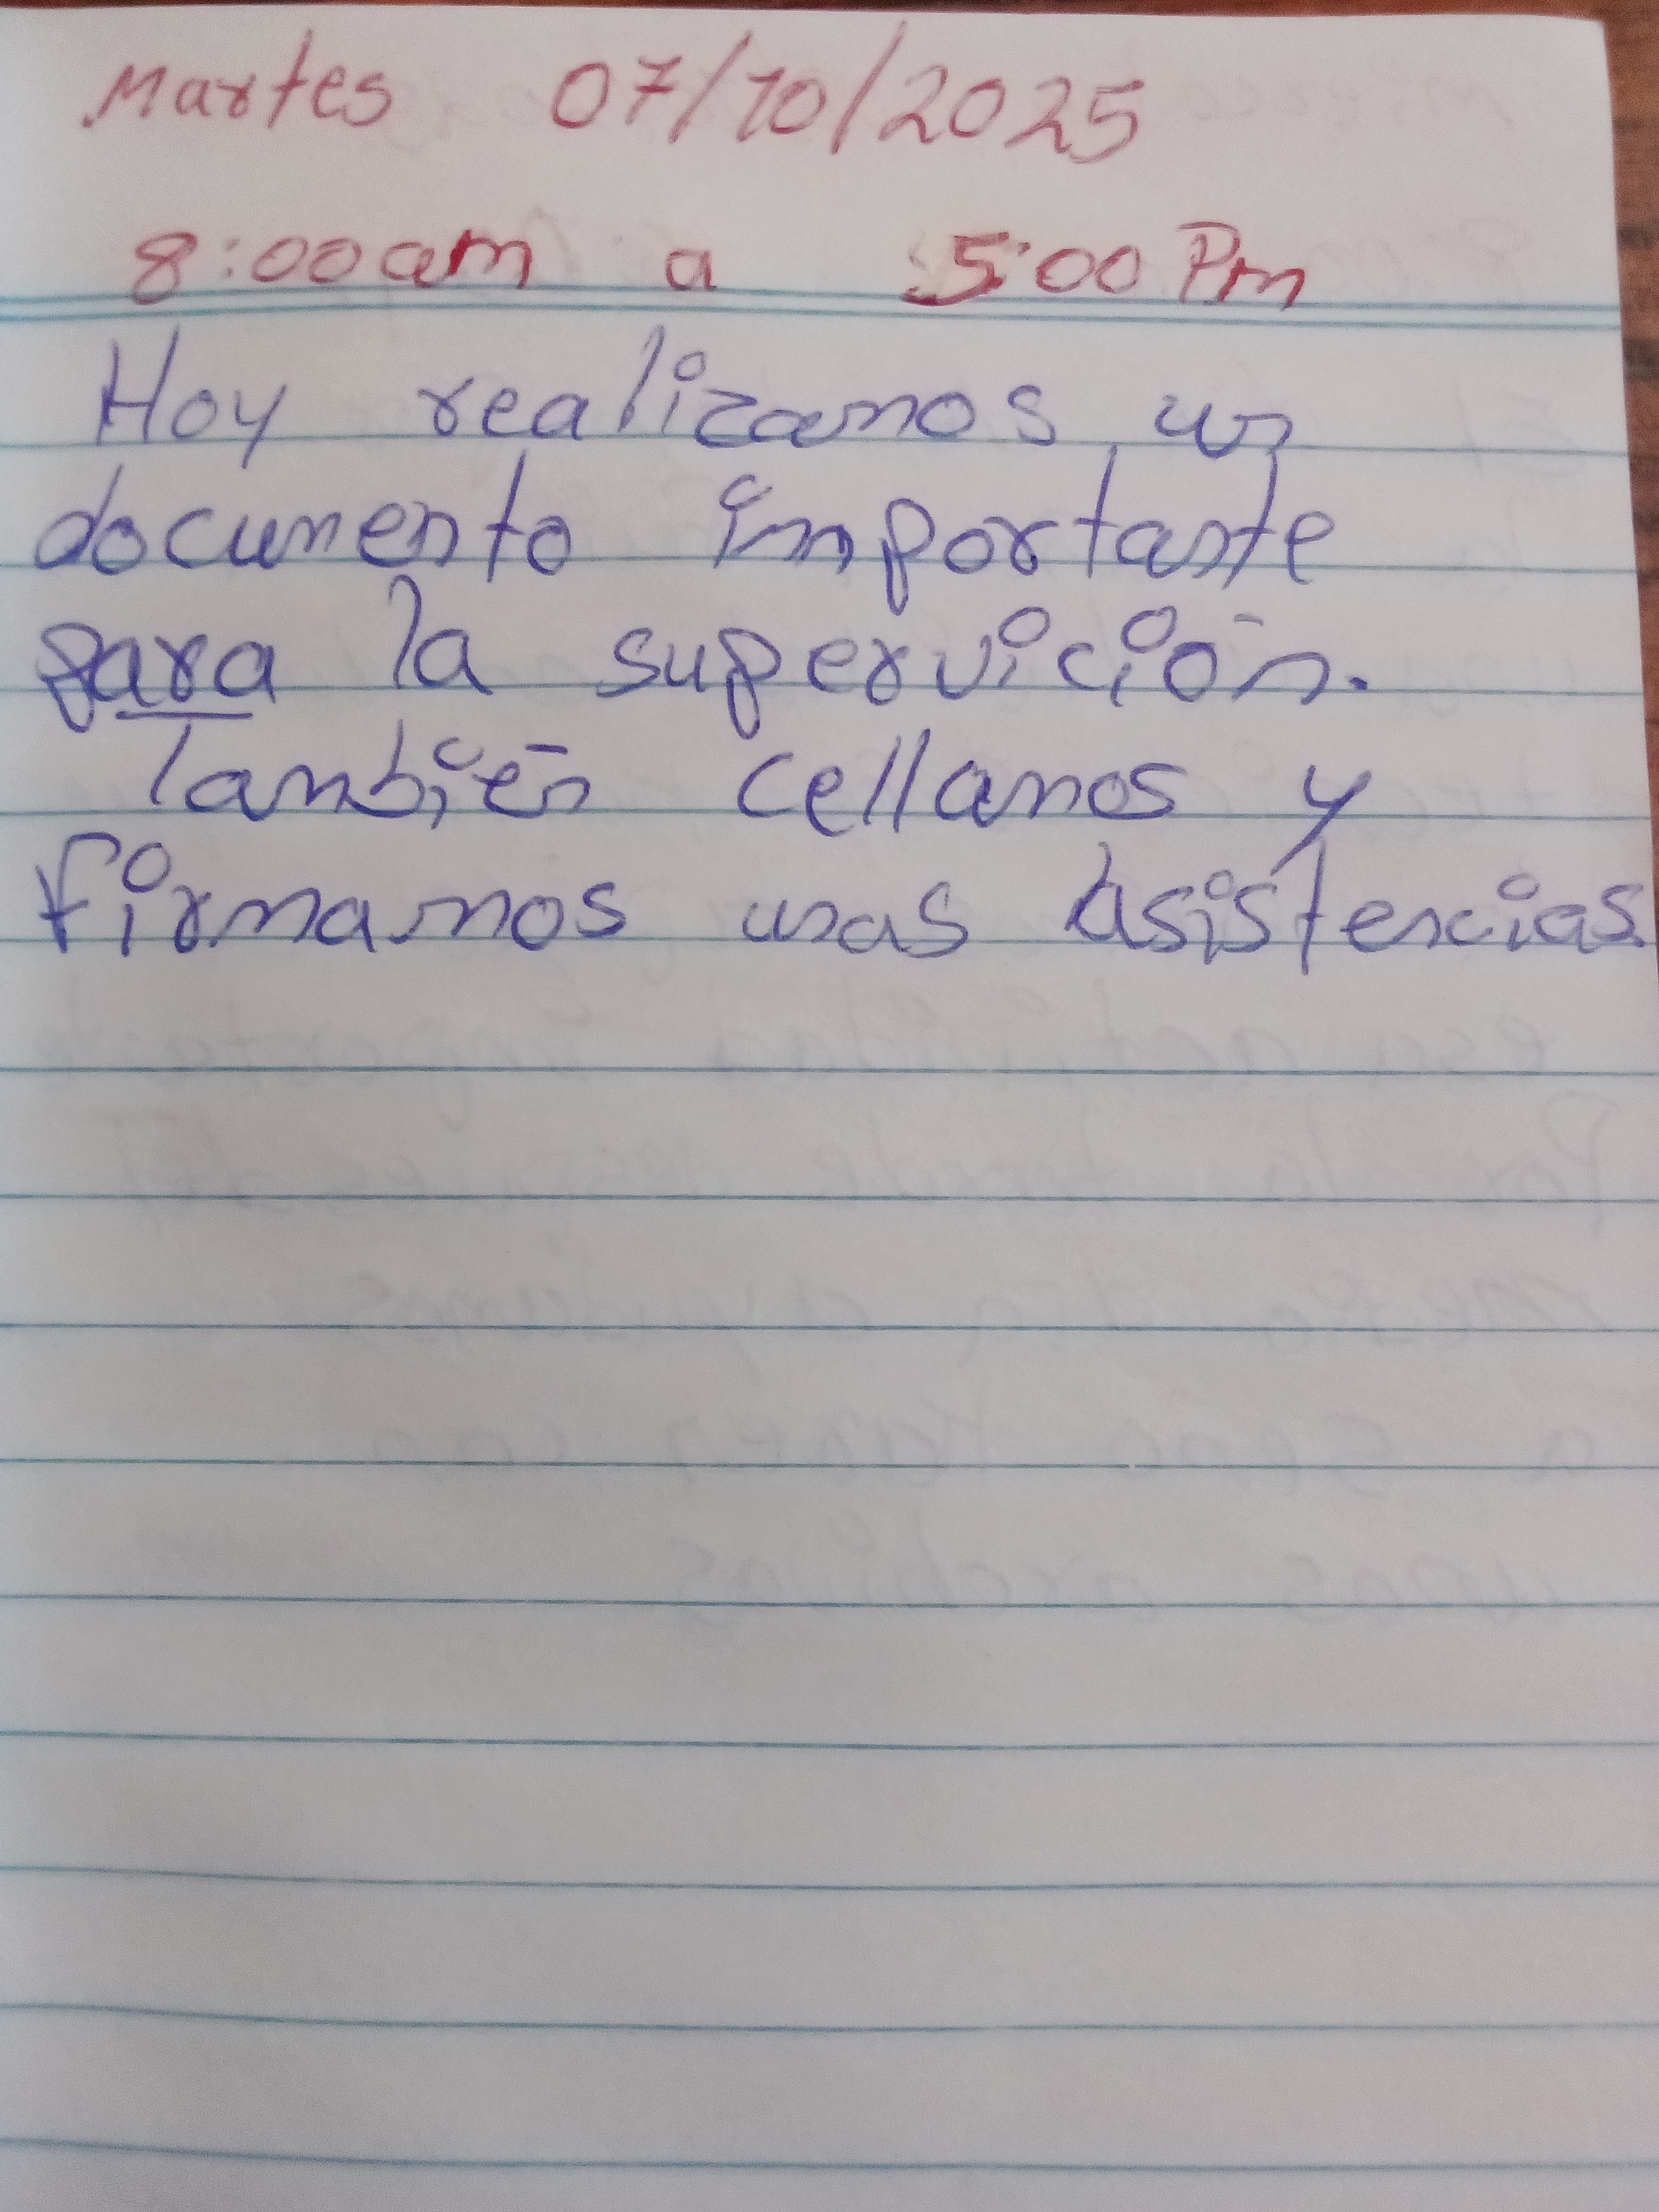 Martes 07/10/2025
8:00am a 5:00 Pm
Hoy realizamos un
documento importante
para la supervición.
También cellamos y
firmamos unas Asistencias.